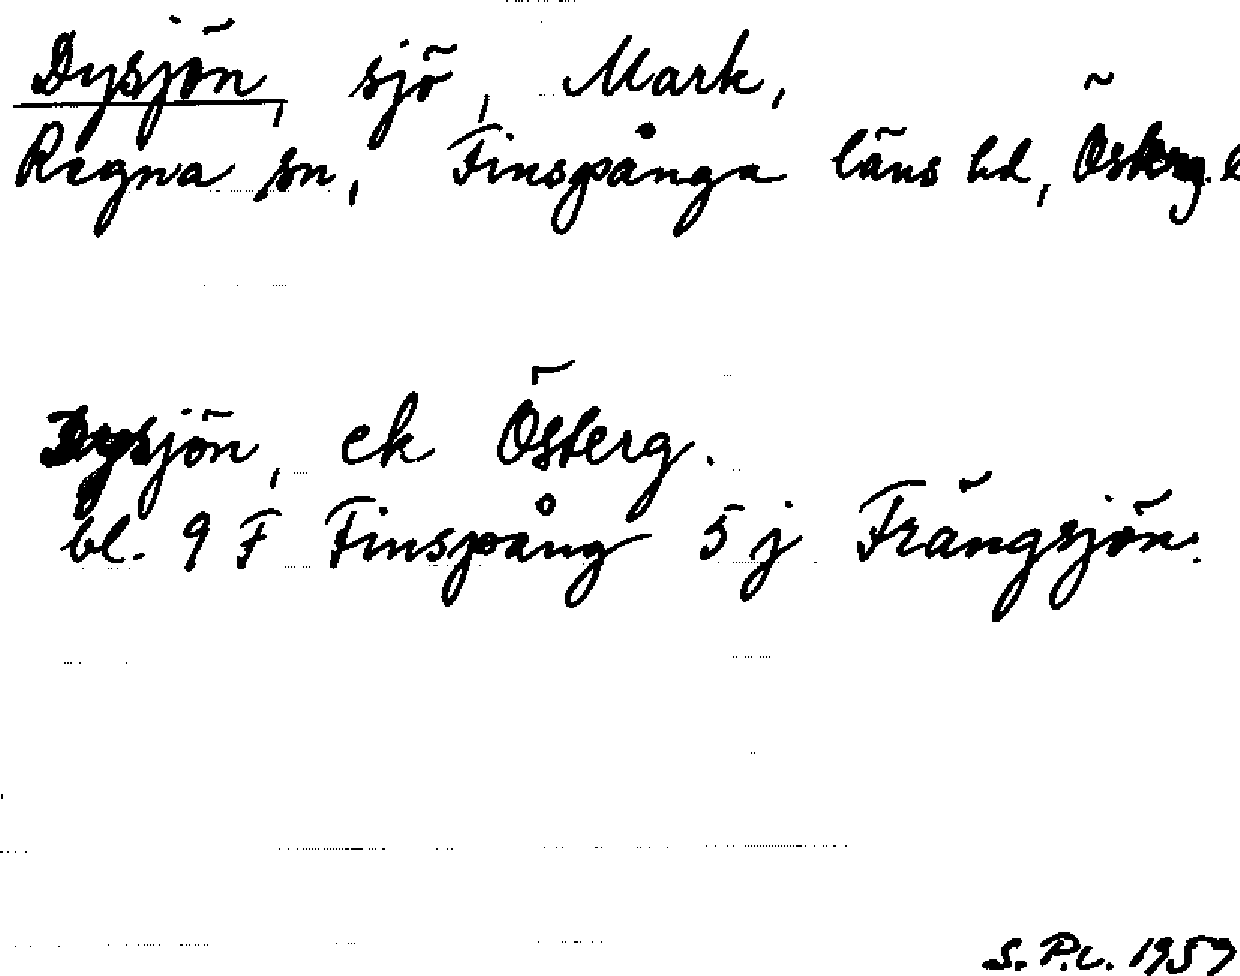 Dysjön, sjö, Mark,
Regna sn, Finspånga läns hd, Österg. l
Dysjön, ek Österg.
bl. 9 F Finspång 5 j Frängsjön.
S. P.c. 1957